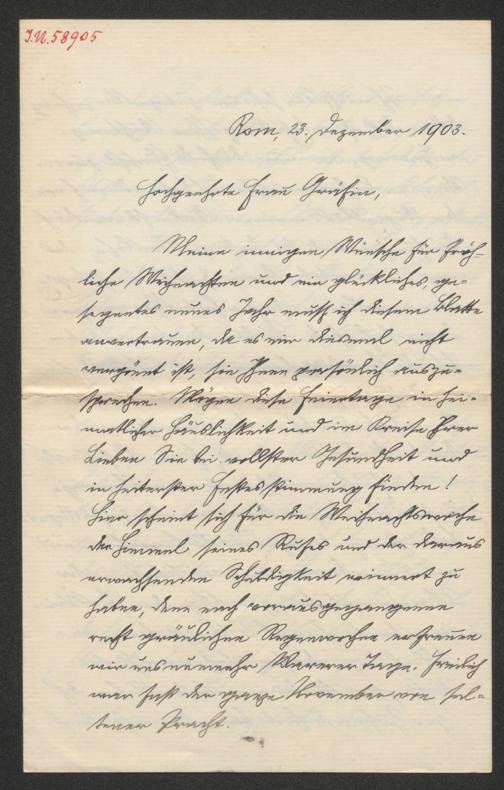 I.N. 58905
Rom, 23. Dezember 1903.
Hochgeehrte Frau Gräfin,
Meine innigen Wünsche für fröh-
liche Weihnachten und ein glückliches, ge-
segnetes neues Jahr muß ich diesem Blatte
anvertrauen, da es mir diesmal nicht
vergönnt ist, sie Ihnen persönlich auszu-
sprechen. Mögen diese Feiertage in hei-
matlicher Häuslichkeit und im Kreise Ihrer
Lieben Sie bei vollster Gesundheit und
in heiterster Festesstimmung finden!
Hier scheint sich für die Weihnachtswoche
der Himmel seines Rufes und der daraus
erwachsenden Schuldigkeit erinnert zu
haben, denn nach vorausgegangenen
recht gräulichen Regenwochen erfreuen
wir uns nunmehr Tage. Freilich
war fast der ganze November von sel-
tener Pracht.